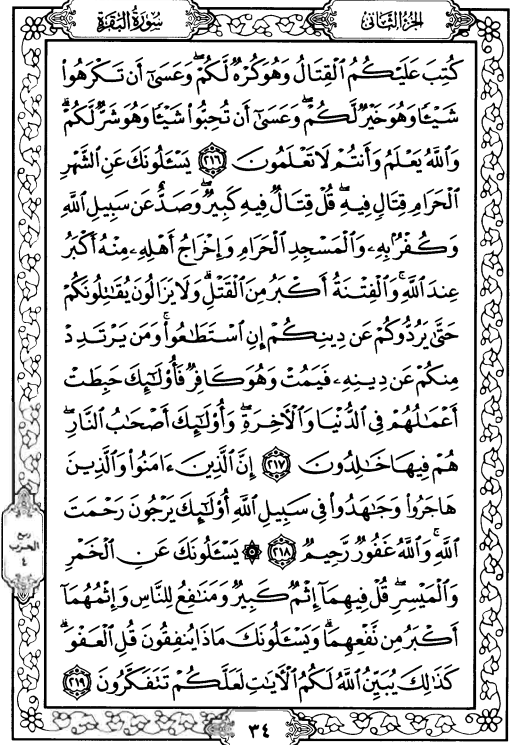 سُورَةُ البَقَرَة
الجزء الثاني
كُتِبَ عَلَيْكُمُ الْقِتَالُ وَهُوَ كُرْهٌ لَّكُمْ ۖ وَعَسَىٰٓ أَن تَكْرَهُوا۟
شَيْـًٔا وَهُوَ خَيْرٌ لَّكُمْ ۖ وَعَسَىٰٓ أَن تُحِبُّوا۟ شَيْـًٔا وَهُوَ شَرٌّ لَّكُمْ ۗ
وَاللَّهُ يَعْلَمُ وَأَنتُمْ لَا تَعْلَمُونَ ٢١٦ يَسْـَٔلُونَكَ عَنِ الشَّهْرِ
الْحَرَامِ قِتَالٍ فِيهِ ۖ قُلْ قِتَالٌ فِيهِ كَبِيرٌ ۖ وَصَدٌّ عَن سَبِيلِ اللَّهِ
وَكُفْرٌۢ بِهِۦ وَالْمَسْجِدِ الْحَرَامِ وَإِخْرَاجُ أَهْلِهِۦ مِنْهُ أَكْبَرُ
عِندَ اللَّهِ ۚ وَالْفِتْنَةُ أَكْبَرُ مِنَ الْقَتْلِ ۗ وَلَا يَزَالُونَ يُقَٰتِلُونَكُمْ
حَتَّىٰ يَرُدُّوكُمْ عَن دِينِكُمْ إِنِ اسْتَطَٰعُوا۟ ۚ وَمَن يَرْتَدِدْ
مِنكُمْ عَن دِينِهِۦ فَيَمُتْ وَهُوَ كَافِرٌ فَأُو۟لَٰٓئِكَ حَبِطَتْ
أَعْمَٰلُهُمْ فِي الدُّنْيَا وَالْءَاخِرَةِ ۖ وَأُو۟لَٰٓئِكَ أَصْحَٰبُ النَّارِ ۖ
هُمْ فِيهَا خَٰلِدُونَ ٢١٧ إِنَّ الَّذِينَ ءَامَنُوا۟ وَالَّذِينَ
هَاجَرُوا۟ وَجَٰهَدُوا۟ فِي سَبِيلِ اللَّهِ أُو۟لَٰٓئِكَ يَرْجُونَ رَحْمَتَ
اللَّهِ ۚ وَاللَّهُ غَفُورٌ رَّحِيمٌ ٢١٨ ۞ يَسْـَٔلُونَكَ عَنِ الْخَمْرِ
وَالْمَيْسِرِ ۖ قُلْ فِيهِمَآ إِثْمٌ كَبِيرٌ وَمَنَٰفِعُ لِلنَّاسِ وَإِثْمُهُمَآ
أَكْبَرُ مِن نَّفْعِهِمَا ۗ وَيَسْـَٔلُونَكَ مَاذَا يُنفِقُونَ قُلِ الْعَفْوَ ۗ
كَذَٰلِكَ يُبَيِّنُ اللَّهُ لَكُمُ الْءَايَٰتِ لَعَلَّكُمْ تَتَفَكَّرُونَ ٢١٩
ربع
الحزب
٤
٣٤